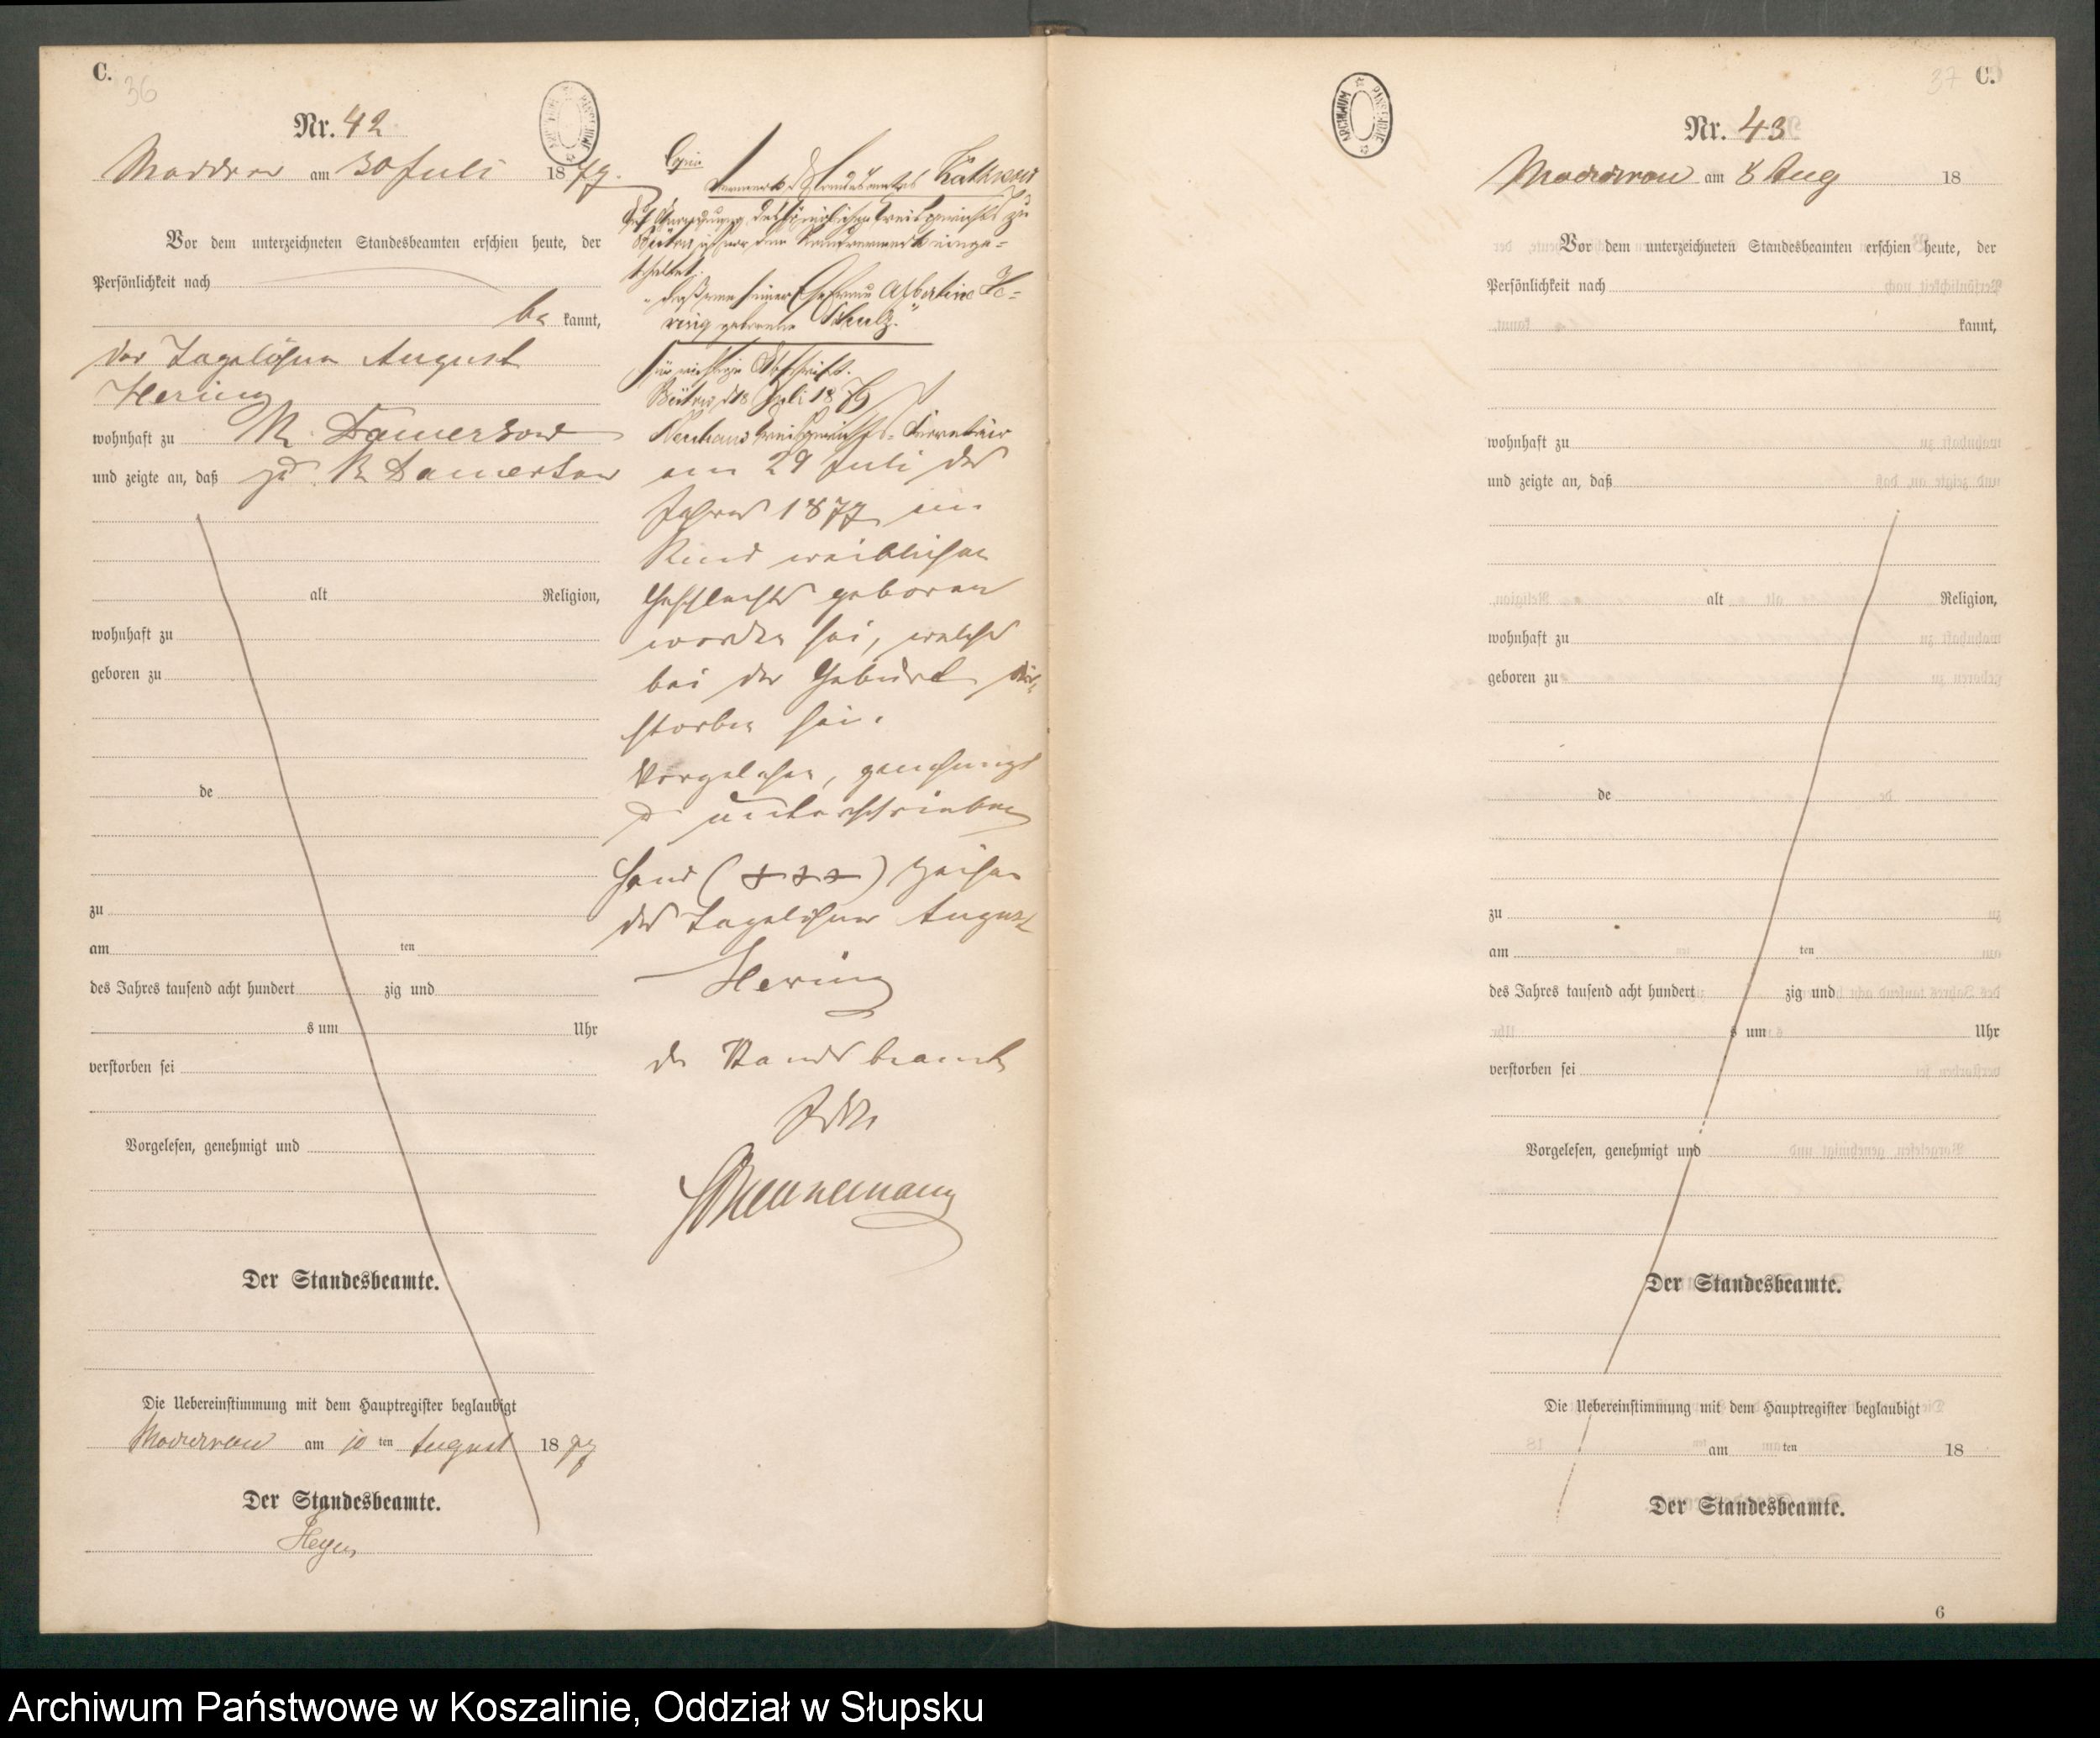 C.
36
Nr. 42
Moddrow am 30 Juli 1877.
Vor dem unterzeichneten Standesbeamten erschien heute, der
Persönlichkeit nach
be kannt,
der Tagelöhner August
Hering
wohnhaft zu Kl. Damerkow
und zeigte an, daß zu Kl Damerkow
alt Religion,
wohnhaft zu
geboren zu
de
zu
am ten
des Jahres tausend acht hundert zig und
s um Uhr
verstorben sei
Vorgelesen, genehmigt und
Der Standesbeamte.
Die Uebereinstimmung mit dem Hauptregister beglaubigt
Moddrow am 10 ten August 1877
Der Standesbeamte.
Copia
Vermerk d. Standesamtes
Auf Anordnung des Königlichen Kreisgerichts zu
Bütow ist vor dem einge-
schaltet:
"daß von seiner Ehefrau Albertine He-
ring geborene Schulz."
Für richtige Abschrift.
Bütow d 18 Juli 1879
Kreisgerichts-Sekretair
am 29 Juli des
Jahres 1877 ein
Kind weiblichen
Geschlechts geboren
worden sei, welches
bei der Geburt ver-
storben sei.
Vorgelesen, genehmigt
u unterschrieben
Hand (+++) zeichen
des Tagelöhner August
Hering
der Standesbeamte
ARCHIWUM PAŃSTWOWE
37 C.
Nr. 43
Moddrow am 8 Aug 18
Vor dem unterzeichneten Standesbeamten erschien heute, der
Persönlichkeit nach
kannt,
wohnhaft zu
und zeigte an, daß
alt Religion,
wohnhaft zu
geboren zu
de
zu
am ten
des Jahres tausend acht hundert zig und
s um Uhr
verstorben sei
Vorgelesen, genehmigt und
Der Standesbeamte.
Die Uebereinstimmung mit dem Hauptregister beglaubigt
am ten 18
Der Standesbeamte.
6
Archiwum Państwowe w Koszalinie, Oddział w Słupsku